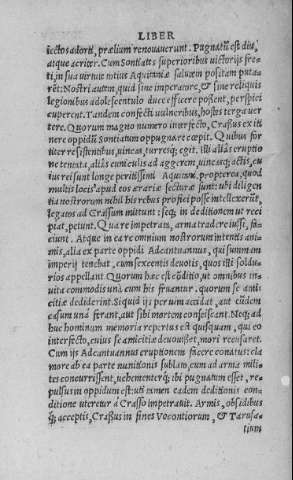 LIBER
iectos adorti, prælium renouauerunt. Pugnatũ est diu,
atque acriter. Cum Sontiates superioribus victorijs fre
ti, in sua virtute totius Aquitaniæ salutem positam puta
rẽt: Nostri autẽ, quid sine imperatore, & sine reliquis
legionibus adolescentulo duce efficere possent, perspici
cuperent. Tandem confecti vulneribus, hostes terga ver
tere. Quorum magno numero interfecto, Crassus ex iti
nere oppidũ Sontiatum oppugnare cœpit. Quibus for
titer resistentibus, vineas, turresq; egit. illi aliâs eruptio
ne tentata, aliâs cuniculis ad aggerem, vineasq; actis, cu
ius rei sunt longe peritissimi Aquitani, propterea, quod
multis locis apud eos ærariæ secturæ sunt: ubi diligen
tia nostrorum nihil his rebus profici posse intellexerũt,
legatos ad Crassum mittunt: seq; in deditionem ut reci
piat, petunt. Qua re impetrata, arma tradere iussi, fa-
ciunt. Atque in ea re omnium nostrorum intentis ani-
mis, alia ex parte oppidi Adcantuannus, qui summam
imperij tenebat, cum sexcentis deuotis, quos illi soldu-
rios appellant. Quorum hæc est cõditio, ut omnibus in
uita commodis unà cum his fruantur, quorum se ami-
citiæ dediderint. Si quid ijs per uim accidat, aut eũdem
casum unà ferant, aut sibi mortem consciscant. Neq; ad
huc hominum memoria repertus est quisquam, qui eo
interfecto, cuius se amicitiæ deuouisset, mori recusaret.
Cum ijs Adcantuannus eruptionem facere conatus: cla
more ab ea parte munitionis sublato, cum ad arma mili-
tes concurrissent, uehementerq; ibi pugnatum esset, re-
pulsus in oppidum est: uti tamen eadem deditionis con-
ditione uteretur à Crasso impetrauit. Armis, obsidibus
q; acceptis, Crassus in fines Vocontiorum, & Tarusa-
tium